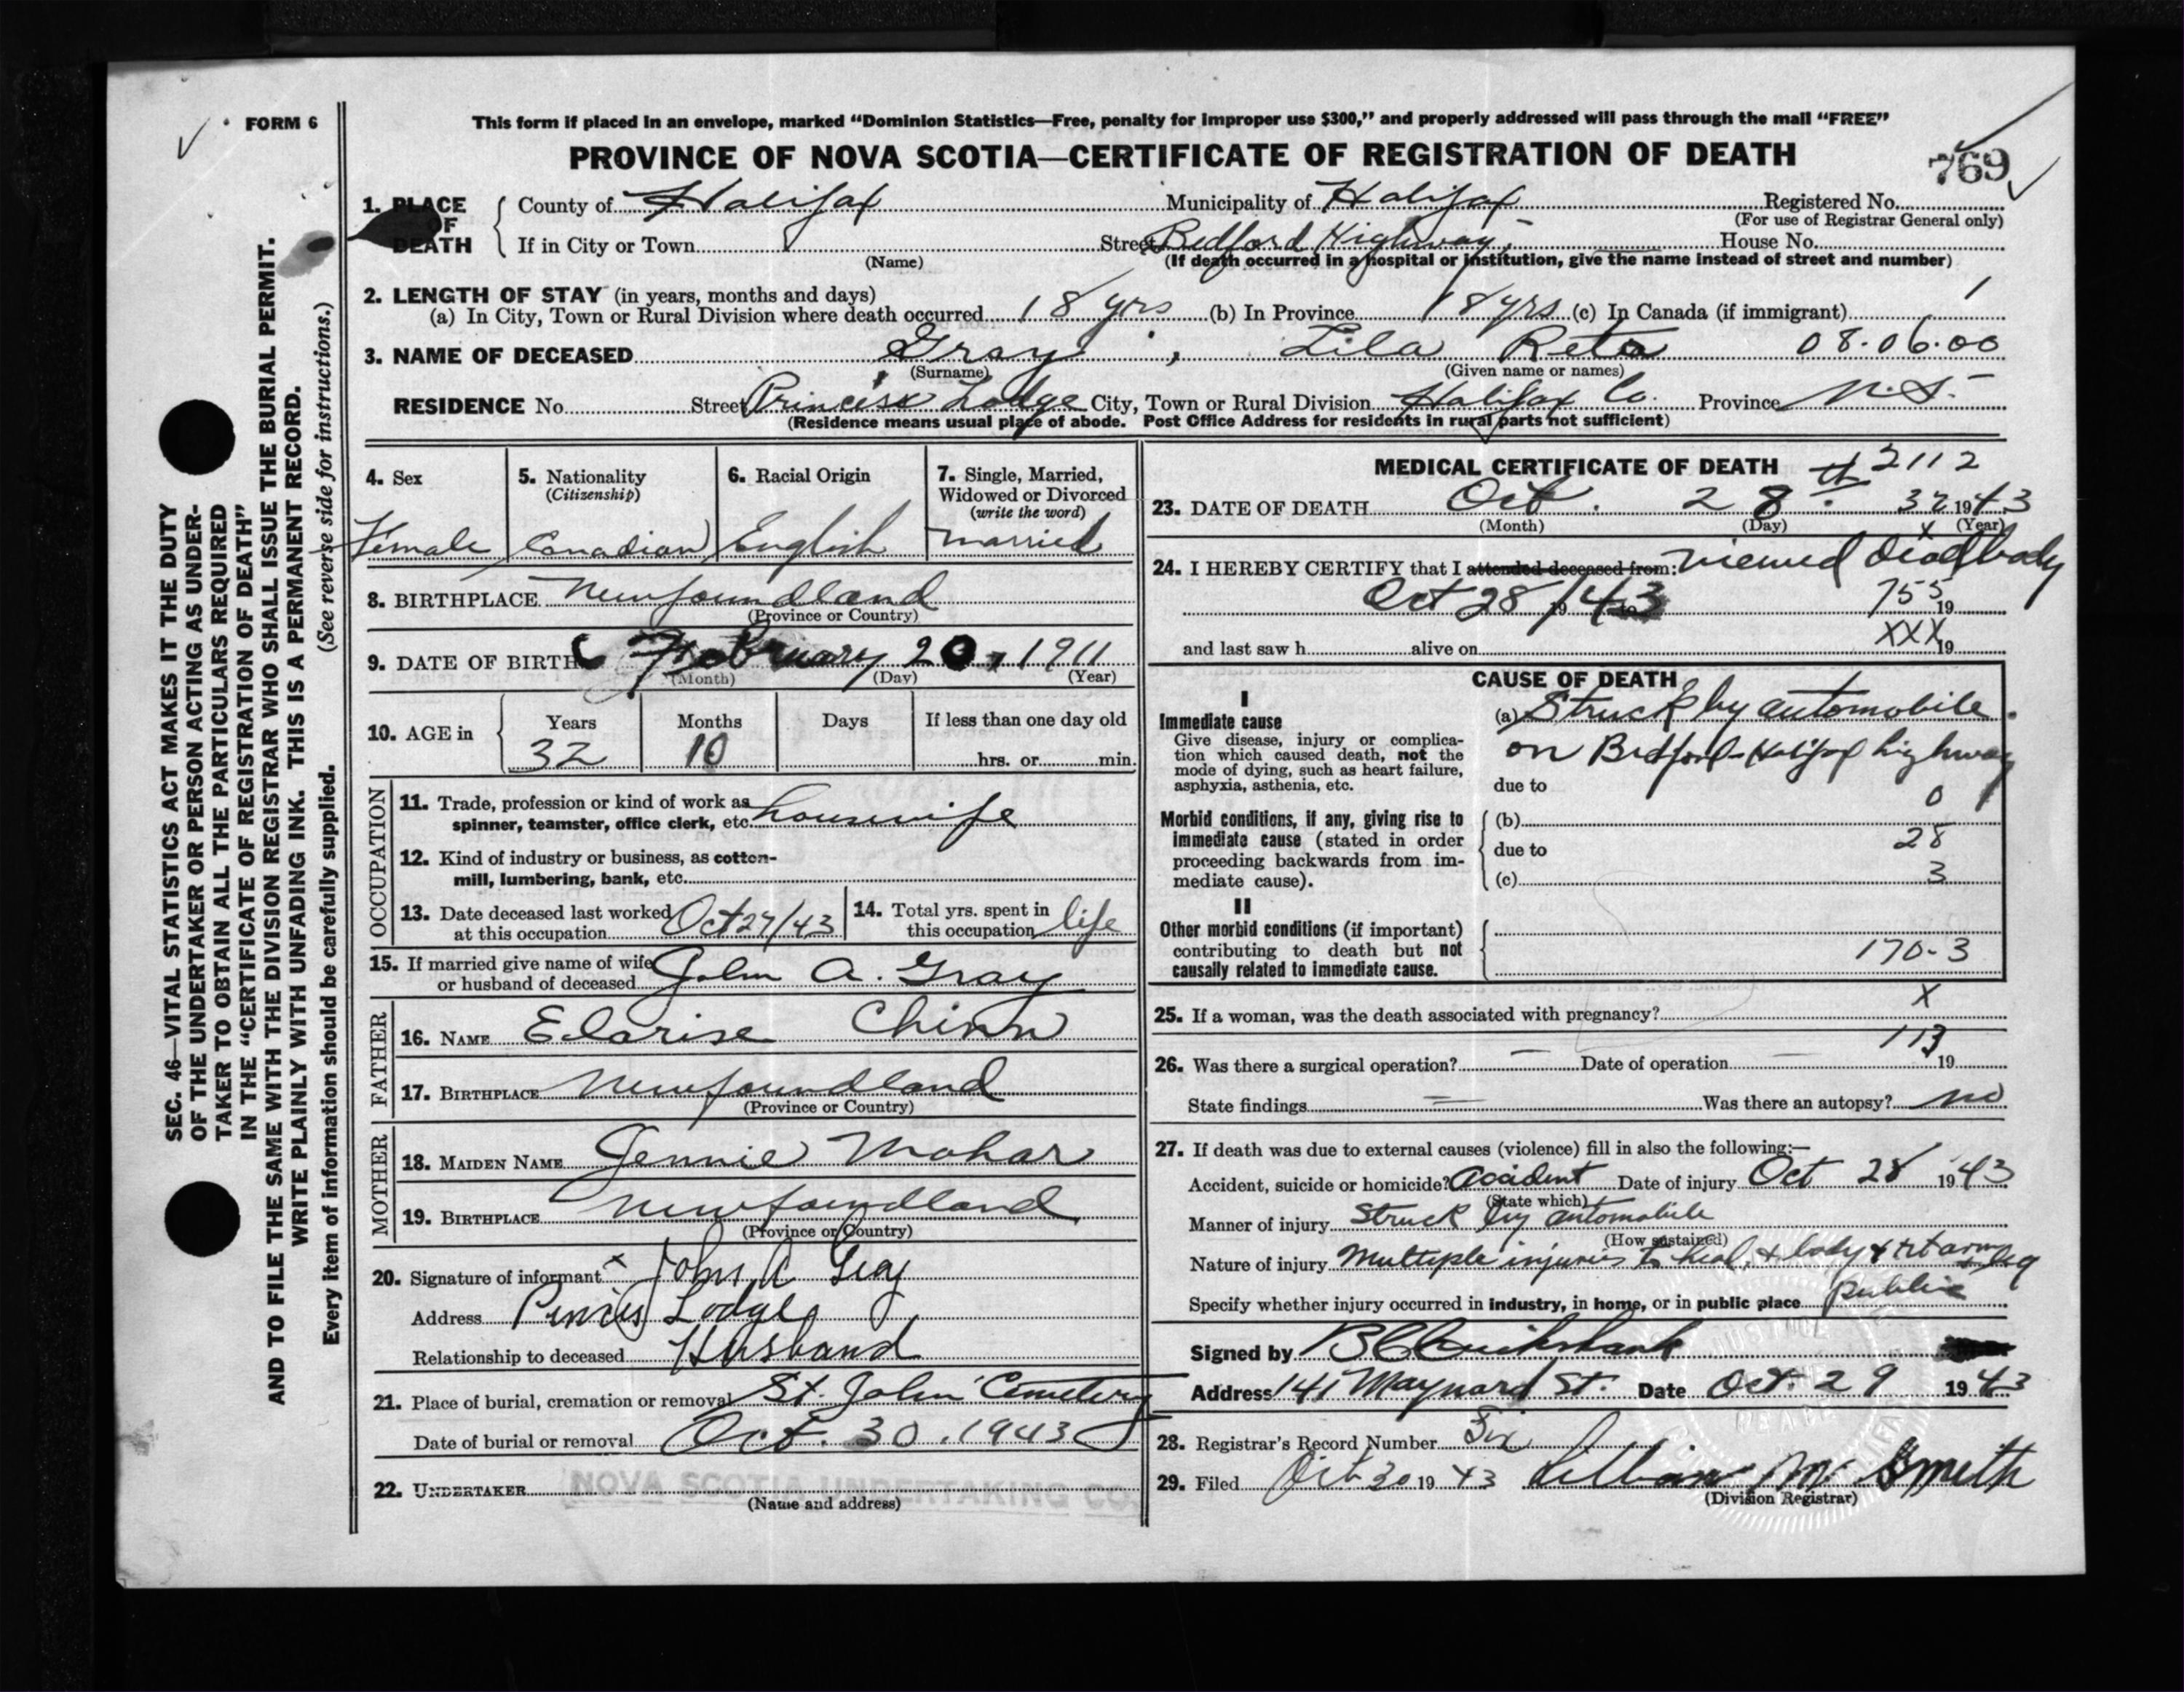 FORM 6
This form if placed in an envelope, marked “Dominion Statistics—Free, penalty for improper use $300,” and properly addressed will pass through the mail “FREE”
PROVINCE OF NOVA SCOTIA—CERTIFICATE OF REGISTRATION OF DEATH
769
1. PLACE OF DEATH
County of Halifax Municipality of Halifax Registered No.
(For use of Registrar General only)
If in City or Town Street Bedford Highway, House No.
(Name) (If death occurred in a hospital or institution, give the name instead of street and number)
2. LENGTH OF STAY (in years, months and days)
(a) In City, Town or Rural Division where death occurred 18 yrs (b) In Province 18 yrs (c) In Canada (if immigrant)
3. NAME OF DECEASED Gray, Lila Reta 08.06.00
(Surname) (Given name or names)
RESIDENCE No. Street Princess Lodge City, Town or Rural Division Halifax Co. Province N.S.
(Residence means usual place of abode. Post Office Address for residents in rural parts not sufficient)
4. Sex Female
5. Nationality (Citizenship) Canadian
6. Racial Origin English
7. Single, Married, Widowed or Divorced (write the word) married
8. BIRTHPLACE Newfoundland
(Province or Country)
9. DATE OF BIRTH February 20, 1911
(Month) (Day) (Year)
10. AGE in Years 32 Months 10 Days If less than one day old hrs. or min.
OCCUPATION
11. Trade, profession or kind of work as spinner, teamster, office clerk, etc. housewife
12. Kind of industry or business, as cotton-mill, lumbering, bank, etc.
13. Date deceased last worked at this occupation Oct 27/43
14. Total yrs. spent in this occupation life
15. If married give name of wife or husband of deceased John A. Gray
FATHER
16. NAME Elarise Chinn
17. BIRTHPLACE Newfoundland
(Province or Country)
MOTHER
18. MAIDEN NAME Jennie Mohar
19. BIRTHPLACE Newfoundland
(Province or Country)
20. Signature of informant x John A Gray
Address Princess Lodge
Relationship to deceased Husband
21. Place of burial, cremation or removal St. John Cemetery
Date of burial or removal Oct. 30, 1943
22. UNDERTAKER NOVA SCOTIA UNDERTAKING CO.
(Name and address)
MEDICAL CERTIFICATE OF DEATH 2112
23. DATE OF DEATH Oct. 28th 32 1943
(Month) (Day) (Year)
24. I HEREBY CERTIFY that I attended deceased from: viewed dead body
Oct 28/43 755 19
and last saw h alive on XXX 19
CAUSE OF DEATH
I
Immediate cause
Give disease, injury or complication which caused death, not the mode of dying, such as heart failure, asphyxia, asthenia, etc.
(a) Struck by automobile
on Bedford-Halifax highway
due to
0
Morbid conditions, if any, giving rise to immediate cause (stated in order proceeding backwards from immediate cause).
(b)
due to 28
(c) 3
II
Other morbid conditions (if important) contributing to death but not causally related to immediate cause.
170-3
25. If a woman, was the death associated with pregnancy? X
113
26. Was there a surgical operation? — Date of operation — 19
State findings — Was there an autopsy? no
27. If death was due to external causes (violence) fill in also the following:—
Accident, suicide or homicide? Accident Date of injury Oct 28 1943
(State which)
Manner of injury Struck by automobile
(How sustained)
Nature of injury Multiple injuries to head, & body & rt arm & leg
Specify whether injury occurred in industry, in home, or in public place Public
Signed by
Address 141 Maynard St. Date Oct. 29 1943
28. Registrar's Record Number Six
29. Filed Oct 30 1943 Lillian M. Smith
(Division Registrar)
SEC. 46—VITAL STATISTICS ACT MAKES IT THE DUTY
OF THE UNDERTAKER OR PERSON ACTING AS UNDER-
TAKER TO OBTAIN ALL THE PARTICULARS REQUIRED
IN THE “CERTIFICATE OF REGISTRATION OF DEATH”
AND TO FILE THE SAME WITH THE DIVISION REGISTRAR WHO SHALL ISSUE THE BURIAL PERMIT.
WRITE PLAINLY WITH UNFADING INK. THIS IS A PERMANENT RECORD.
Every item of information should be carefully supplied. (See reverse side for instructions.)